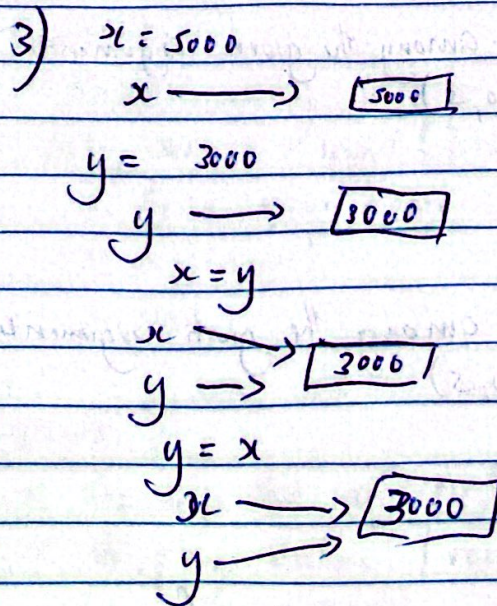 3) x = 5000
x → 5000
y = 3000
y → 3000
x = y
x
y → 3000
y = x
x → 3000
y →